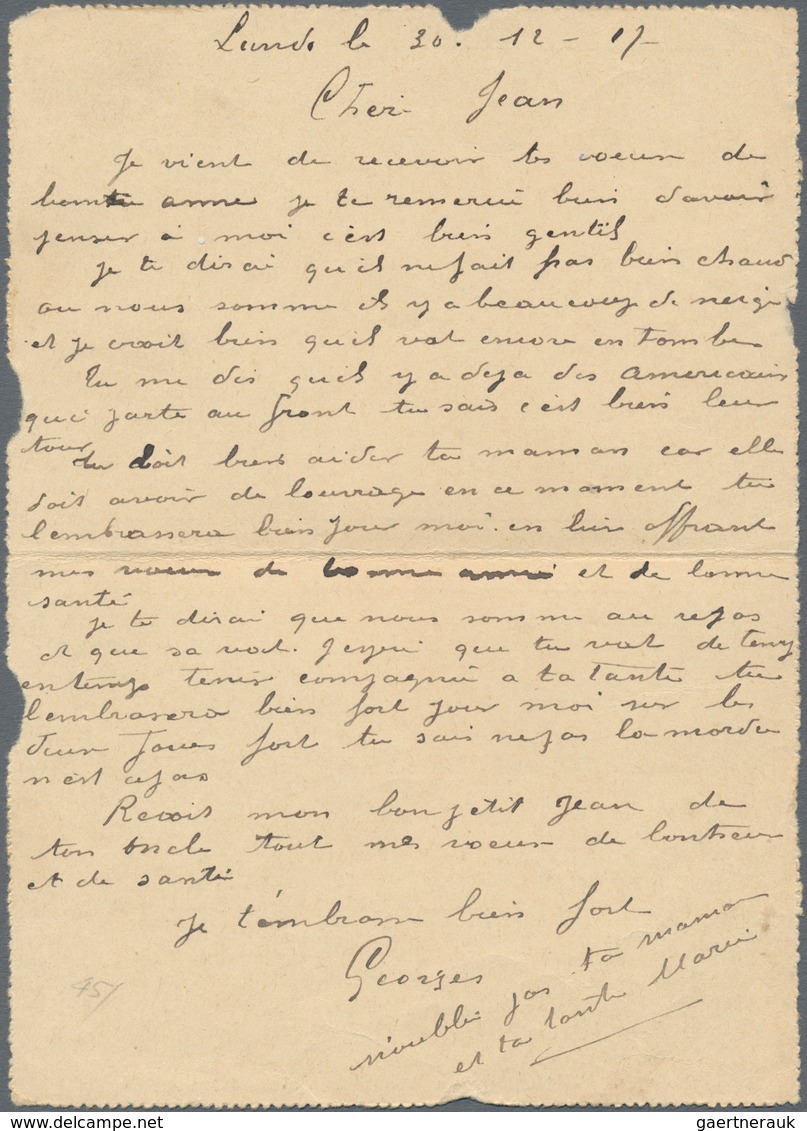 Lundi le 30. 12 - 17
Cher Jean
Je vient de recevoir tes voeux de
bonne anne je te remercie bien d'avoir
penser à moi c'est bien gentil
Je te dirai qu'il ne fait pas bien chaud
ou nous somme il y a beaucoup de neige
et je croit bien qu'il vat encore en tombe
Tu me dis qu'il y a deja des americains
qui parte au front tu sais c'est bien leur
tour
Tu doit bien aider ta maman car elle
doit avoir de louvrage en ce moment tu
lembrassera bien pour moi en lui offrant
mes voeux de bonne année et de bonne
santé
Je te dirai que nous somme au repos
et que sa vat. J'espere que tu vat de temp
en temp tenir compagnie a ta tante tu
lembrasera bien fort pour moi sur les
deux joues fort tu sais ne pas la mordre
n'est ce pas
Recoit mon bon petit Jean de
ton oncle tout mes voeux de bonheur
et de santé
Je t'émbrasse bien fort
Georges
n'oublie pas ta maman
et ta tante Marie
45/
gaertnerauk